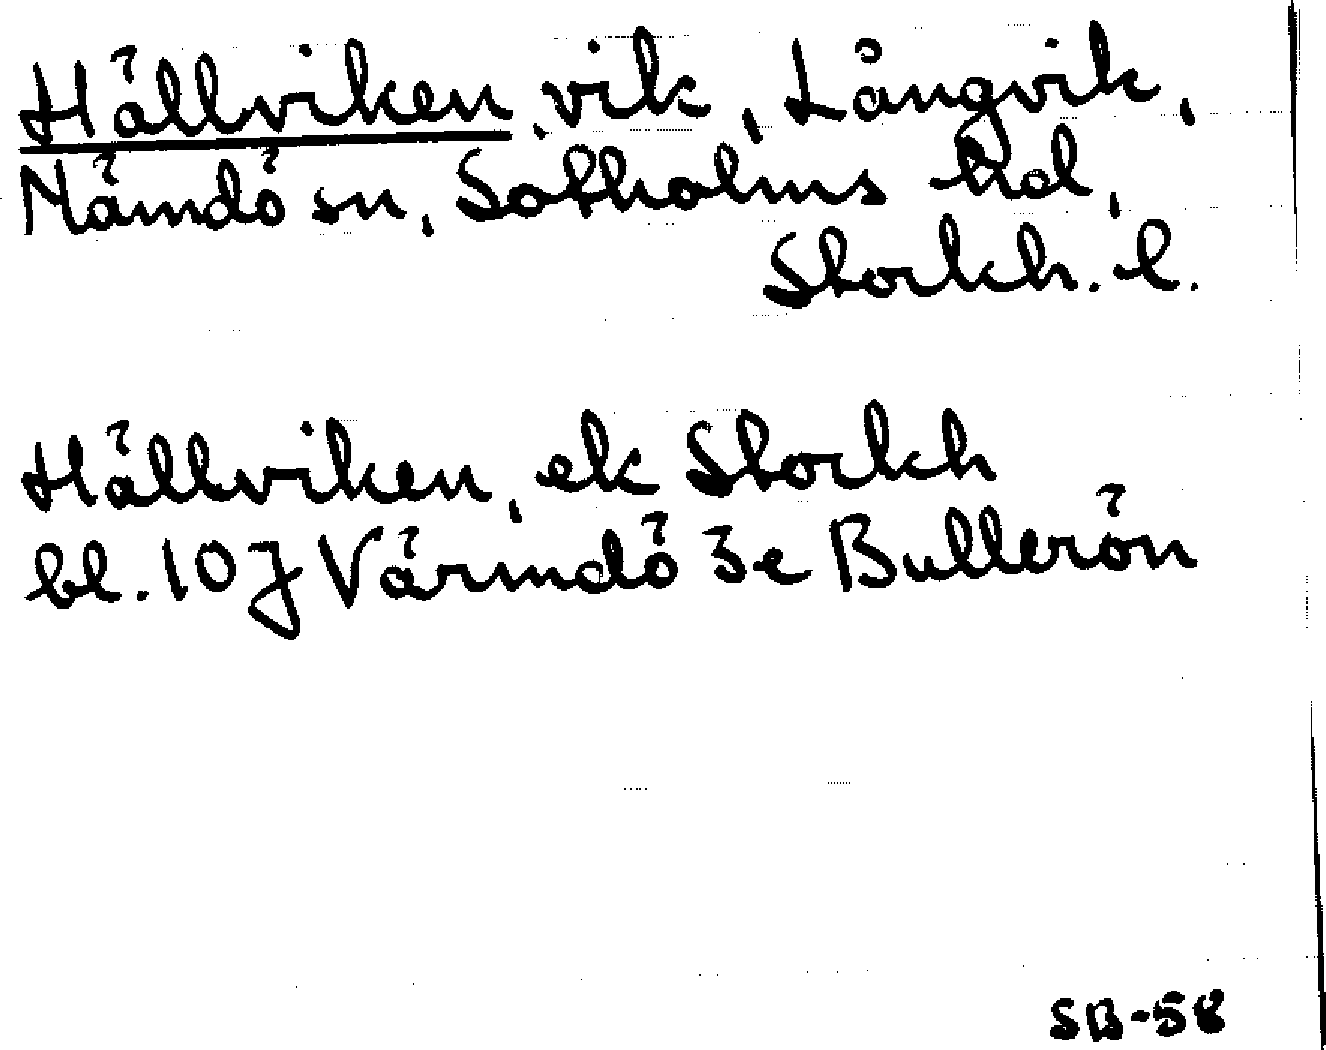 Hällviken, vik, Långvik,
Nämdö sn, Sotholms hd,
Stockh. l.
Hällviken, ek Stockh
bl. 10J Värmdö 3e Bullerön
SB-58